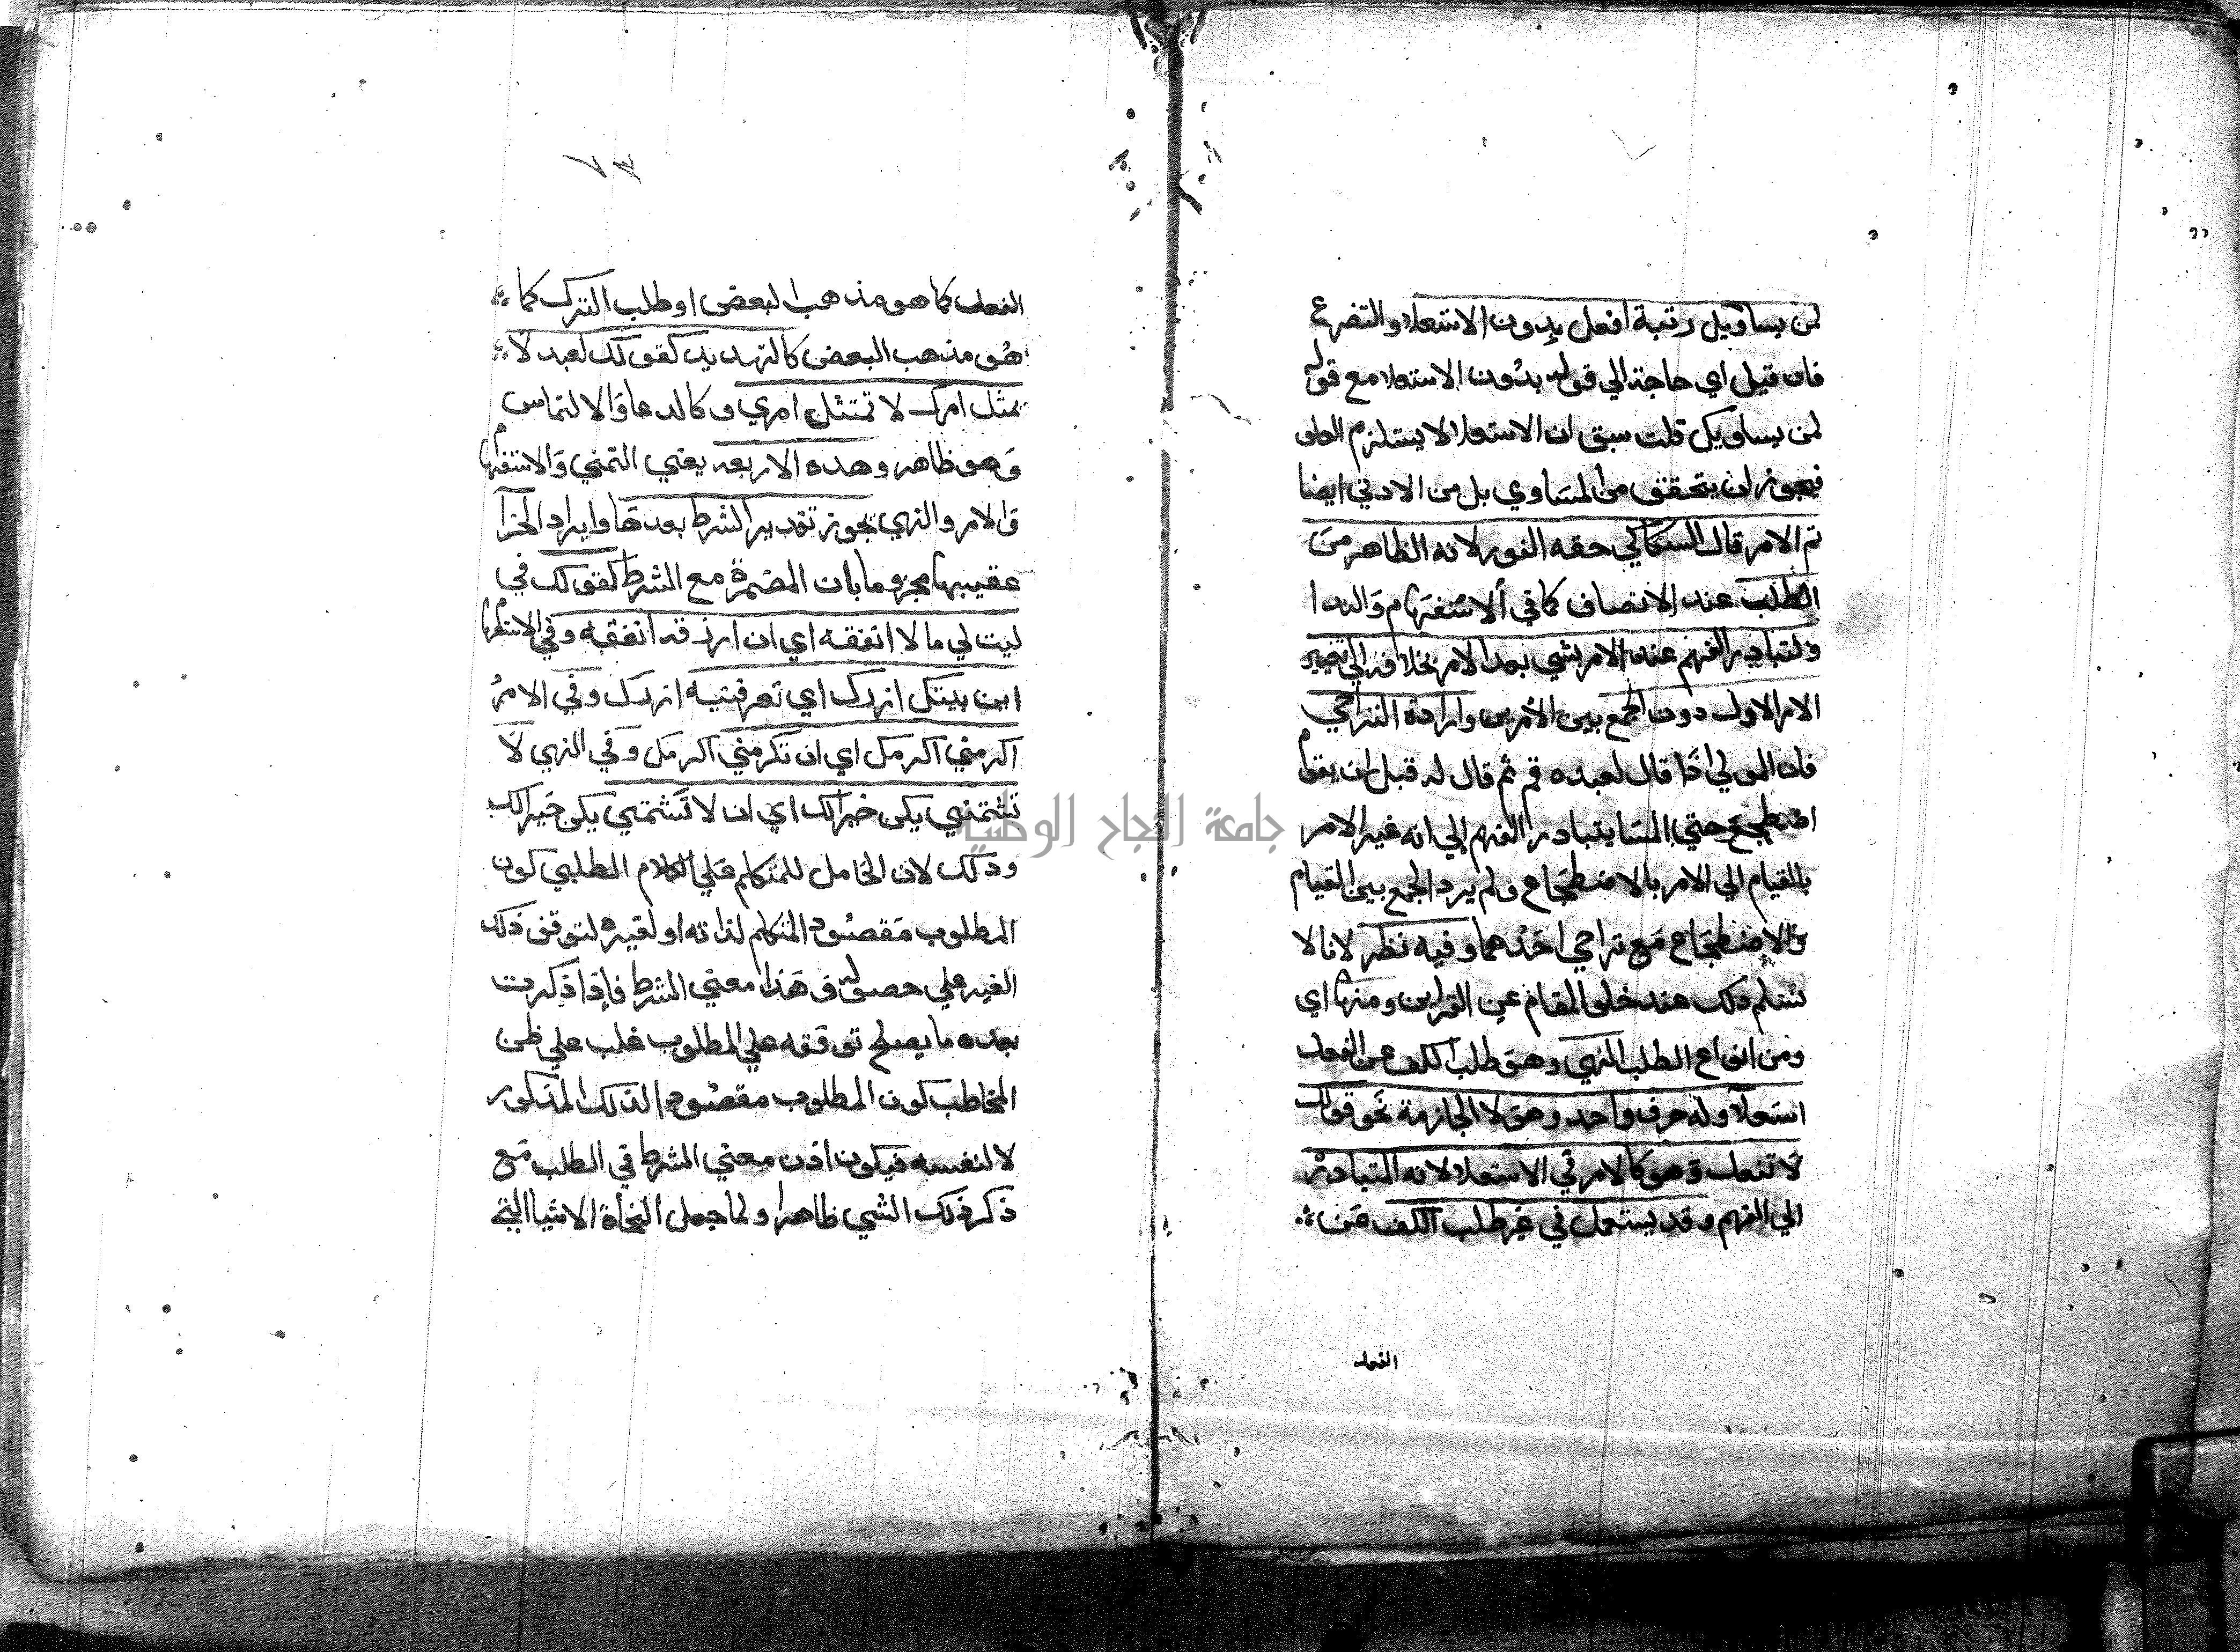 لمن يساويك رتبة افعل بدون الاستعلا والتضرع
فان قيل اي حاجة الي قوله بدون الاستعلا مع قوله
لمن يساويك قلت سبق ان الاستعلا لا يستلزم العلو
فيجوز ان يتحقق من المساوي بل من الادني ايضا
ثم الامر قال السكاكي حقه الفور لانه الظاهر من
الطلب عند الانصاف كما في الاستفهام والندا
ولتبادر الفهم عند الامر بشي بعد الامر بخلافه الي تغيير
الامر الاول دون الجمع بين الامرين وارادة التراخي
فان المولي اذا قال لعبده قم ثم قال له قبل ان يقوم
اضطجع حتي المسا يتبادر الفهم الي انه غير الامر
بالقيام الي الامر بالاضطجاع ولم يرد الجمع بين القيام
والاضطجاع مع تراخي احدهما وفيه نظر لانا لا
نسلم ذلك عند خلو المقام عن القراين ومنها اي
ومن انواع الطلب النهي وهو طلب الكف عن الفعل
استعلا وله حرف واحد وهو لا الجازمة نحو قولك
لا تفعل وهو كالامر في الاستعلا لانه المتبادر
الي الفهم وقد يستعمل في غير طلب الكف عن
الفعل
٧٣
الفعل كما هو مذهب البعض او طلب الترك كما
هو مذهب البعض كالتهديد كقولك لعبد لا
يمتثل امرك لا تمتثل امري وكالدعا والالتماس
وهو ظاهر وهذه الاربعه يعني التمني والاستفهام
والامر والنهي يجوز تقدير الشرط بعدها وايراد الجزا
عقيبها مجزوما بان المضمرة مع الشرط كقولك في
ليت لي مالا انفقه اي ان ارزقه انفقه وفي الاستفهام
اين بيتك ازرك اي تعرفنيه ازرك وفي الامر
اكرمني اكرمك اي ان تكرمني اكرمك وفي النهي لا
تشتمني يكن خيرا لك اي ان لا تشتمني يكن خيرا لك
وذلك لان الحامل للمتكلم علي الكلام الطلبي كون
المطلوب مقصود المتكلم لذاته او لغيره لتوقف ذلك
الغير علي حصوله وهذا معني الشرط فاذا ذكرت
بعده ما يصلح توقفه علي المطلوب غلب علي ظن
المخاطب كون المطلوب مقصودا لذلك المذكور
لا لنفسه فيكون اذن معني الشرط في الطلب مع
ذكر ذلك الشي ظاهرا ولما جعل النحاة الاشيا التي
جامعة النجاح الوطنية